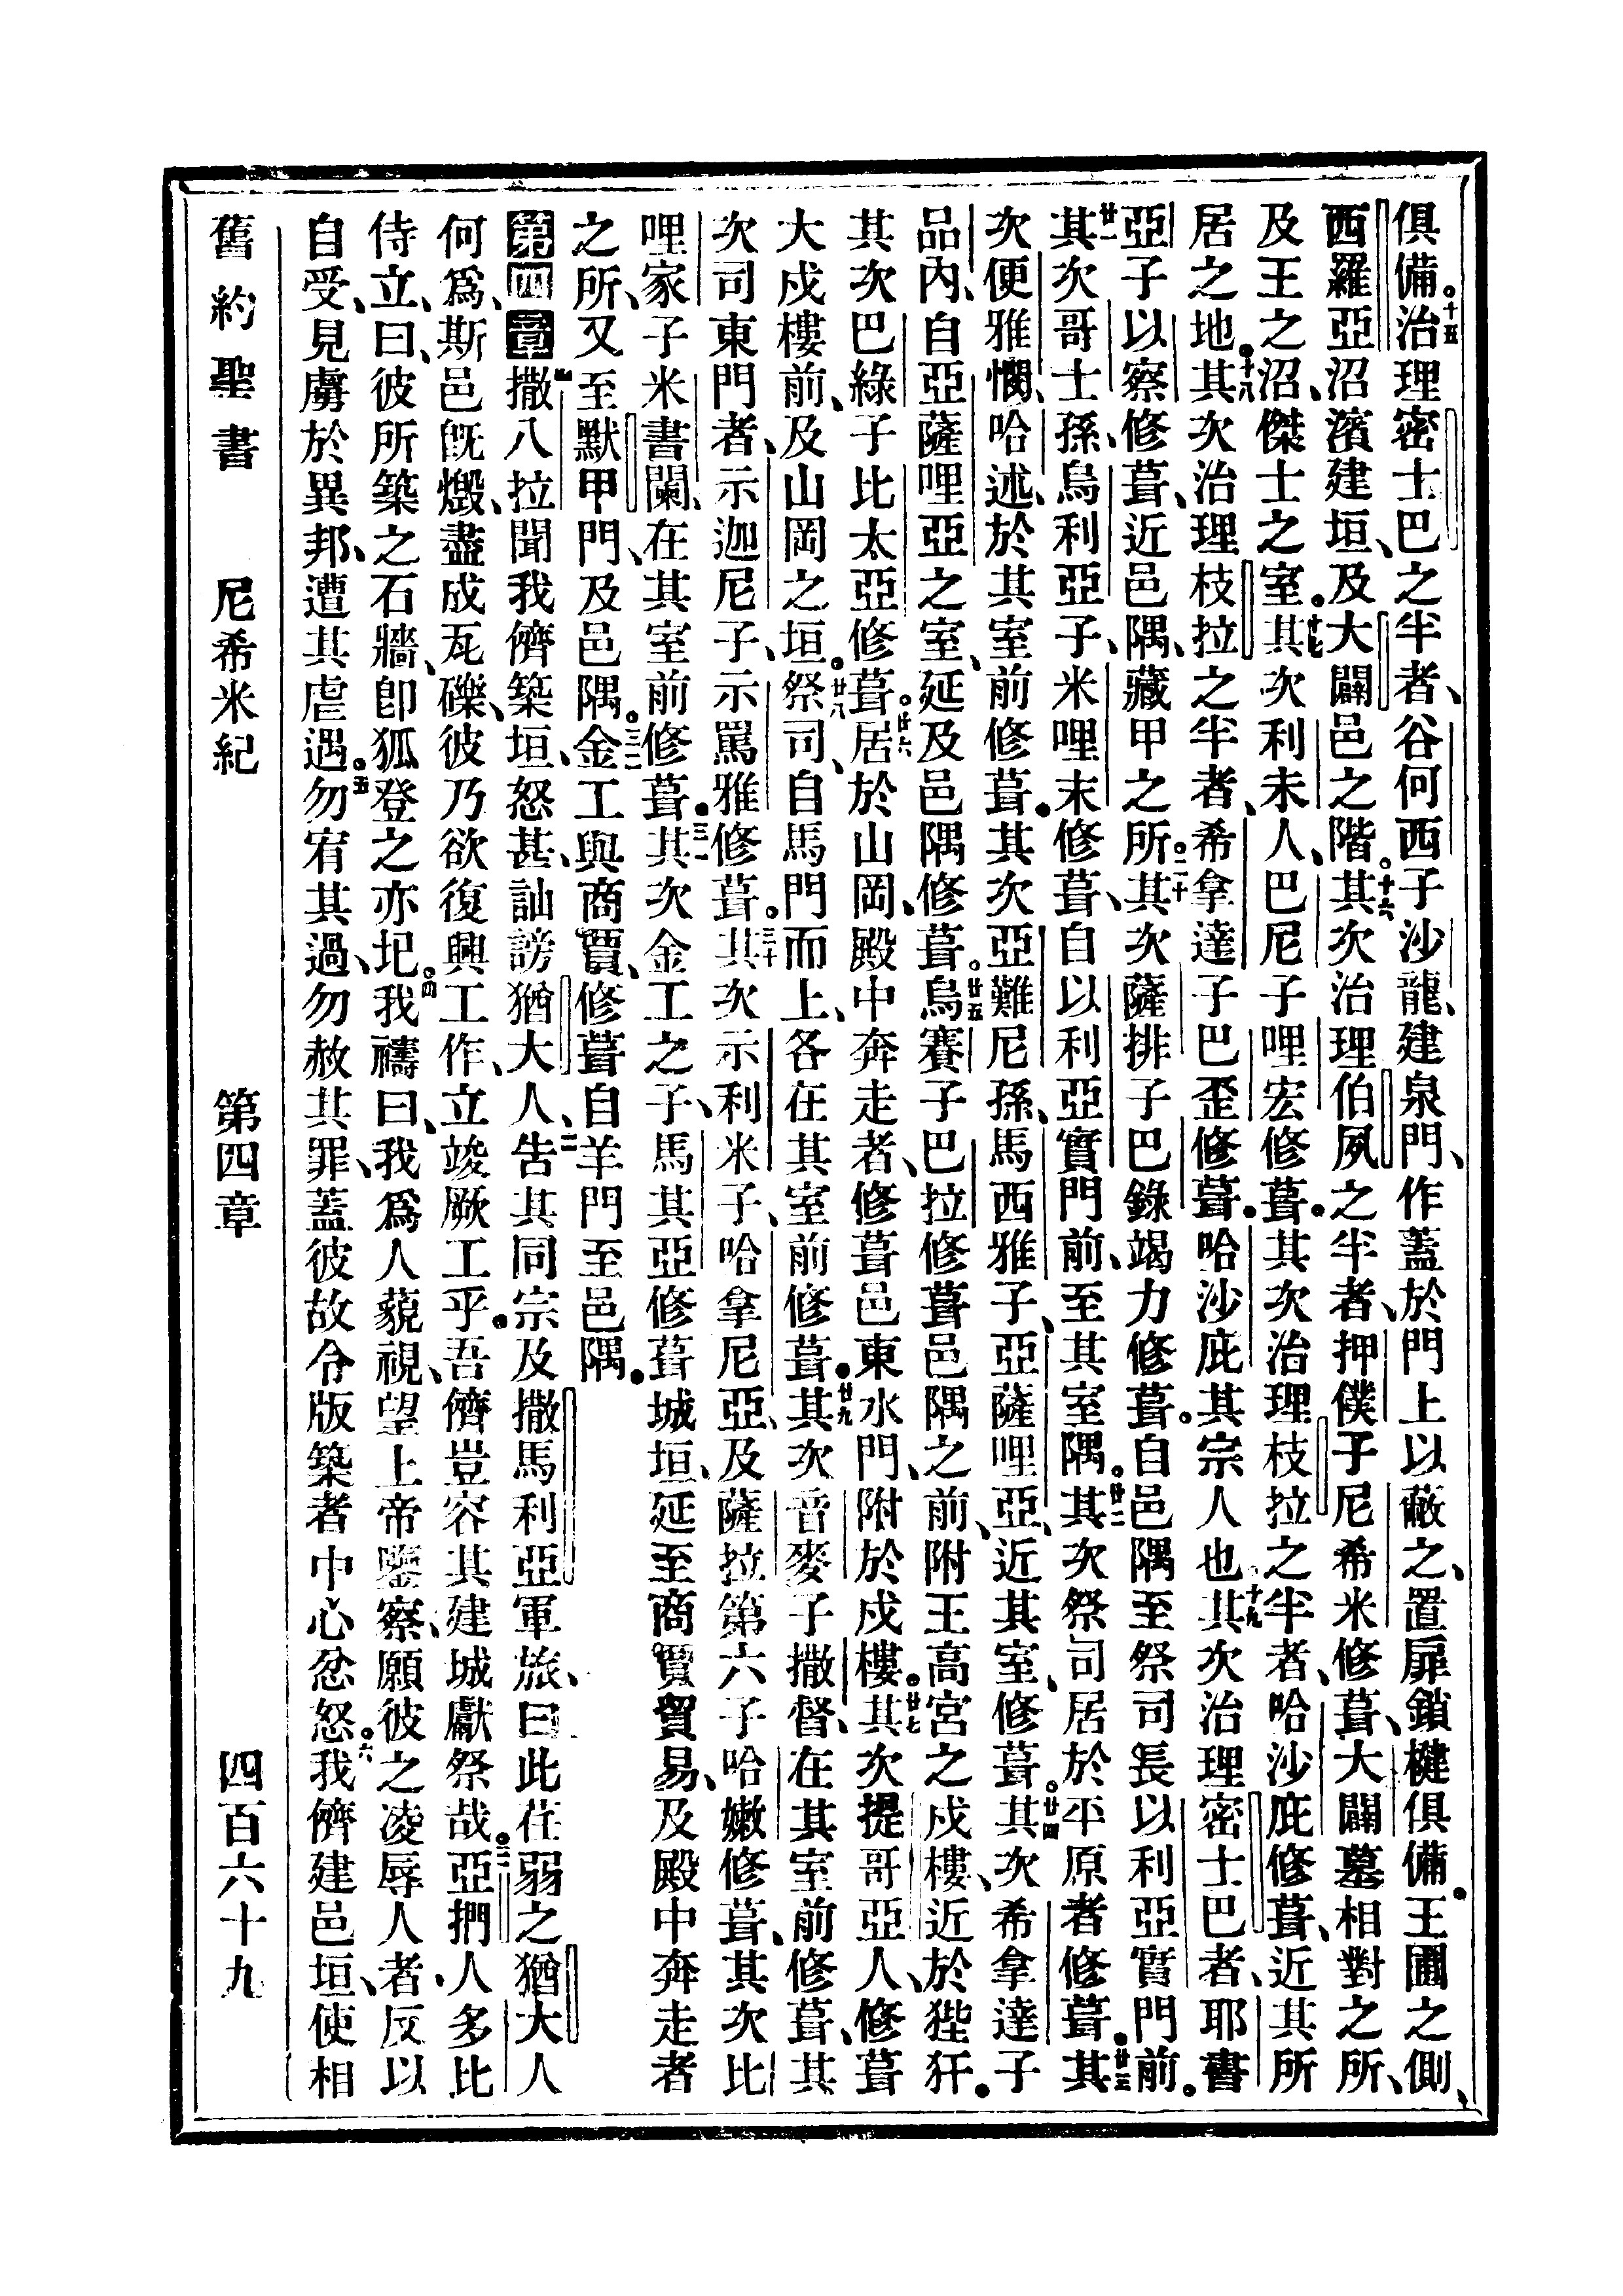 俱備。十五治理密士巴之半者、谷何西子沙龍、建泉門、作蓋於門上以蔽之、置扉鎖楗俱備。王囿之側、
西羅亞沼濱建垣、及大闢邑之階。十六其次治理伯夙之半者、押僕子尼希米修葺、大闢墓相對之所、
及王之沼、傑士之室。十七其次利未人、巴尼子哩宏修葺。其次治理枝拉之半者、哈沙庇修葺、近其所
居之地。十八其次治理枝拉之半者、希拿達子巴歪修葺。哈沙庇其宗人也。十九其次治理密士巴者、耶書
亞子以察修葺、近邑隅、藏甲之所。二十其次薩排子巴錄竭力修葺。自邑隅至祭司長以利亞實門前。
廿一其次哥士孫、烏利亞子、米哩末修葺、自以利亞實門前、至其室隅。廿二其次祭司居於平原者修葺。廿三其
次便雅憫、哈述、於其室前修葺。其次亞難尼孫、馬西雅子、亞薩哩亞、近其室、修葺。廿四其次希拿達子
品內、自亞薩哩亞之室、延及邑隅修葺。廿五烏賽子巴拉修葺邑隅之前、附王高宮之戍樓、近於狴犴。
其次巴綠子比太亞修葺。廿六居於山岡、殿中奔走者、修葺邑東水門、附於戍樓。廿七其次提哥亞人、修葺
大戍樓前、及山岡之垣。廿八祭司、自馬門而上、各在其室前修葺。廿九其次音麥子撒督、在其室前修葺、其
次司東門者、示迦尼子、示罵雅修葺。三十其次示利米子、哈拿尼亞、及薩拉第六子哈嫩修葺、其次比
哩家子米書闌、在其室前修葺。三一其次金工之子、馬其亞修葺城垣、延至商賈貿易、及殿中奔走者
之所、又至默甲門、及邑隅。三二金工與商賈、修葺自羊門至邑隅。
第四章一撒八拉聞我儕築垣、怒甚、訕謗猶大人、二告其同宗及撒馬利亞軍旅、曰此荏弱之猶大人
何爲、斯邑旣燬、盡成瓦礫、彼乃欲復興工作、立竣厥工乎。吾儕豈容其建城獻祭哉。三亞捫人多比
侍立、曰、彼所築之石牆、卽狐登之亦圮。四我禱曰、我爲人藐視、望上帝鑒察、願彼之凌辱人者、反以
自受、見虜於異邦、遭其虐遇。五勿宥其過、勿赦其罪、蓋彼故令版築者中心忿怒。六我儕建邑垣、使相
舊約聖書 尼希米紀 第四章 四百六十九